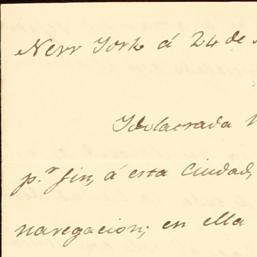 New York á 24 de
Idolatrada
p.r fin, á esta Ciudad,
navegacion; en ella